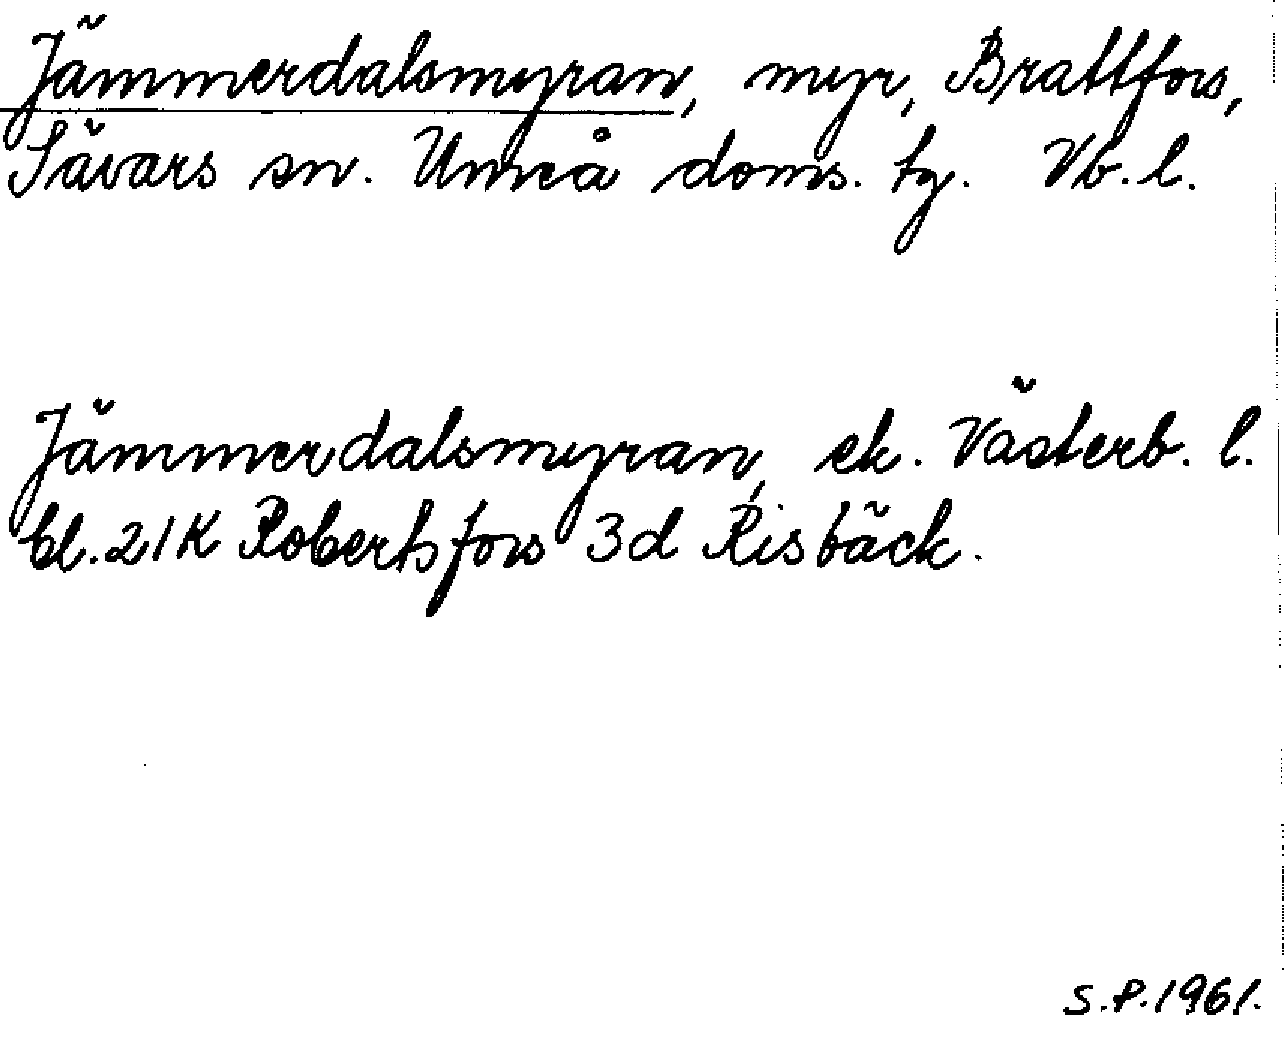 Jämmerdalsmyran, myr, Brattfors,
Sävars sn. Umeå doms. tg. Vb. l.
Jämmerdalsmyran, ek. Västerb. l.
bl. 21K Robertsfors 3d Risbäck.
S.P. 1961.